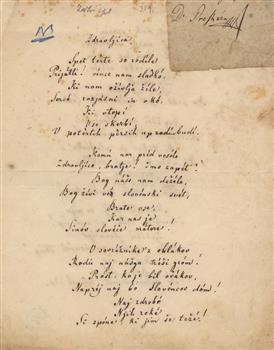 Dr Prešérin
Zdravljica
Spet terte so rodile
Prijatli! vince nam sladkó,
Ki nam oživlja žile,
Serce razjásni in okó,
Ki vtopi
Vse skerbi,
V potertih persih up budí.
Komú nar préd veselo
Zdravljico, bratje! čmo zapét'?
Bog našo nam deželo,
Bog živi ves slovenski svét,
Brate vse,
Kar nas je
Sinóv slovéče mátere!
V sovražnike z oblákov
Rodú naj našga tréši gróm!
Prost, ko je bil očákov,
Napréj naj bo Slovéncov dóm!
Naj zdrobé
Njih roké
Si spóne, ki jim še težé!